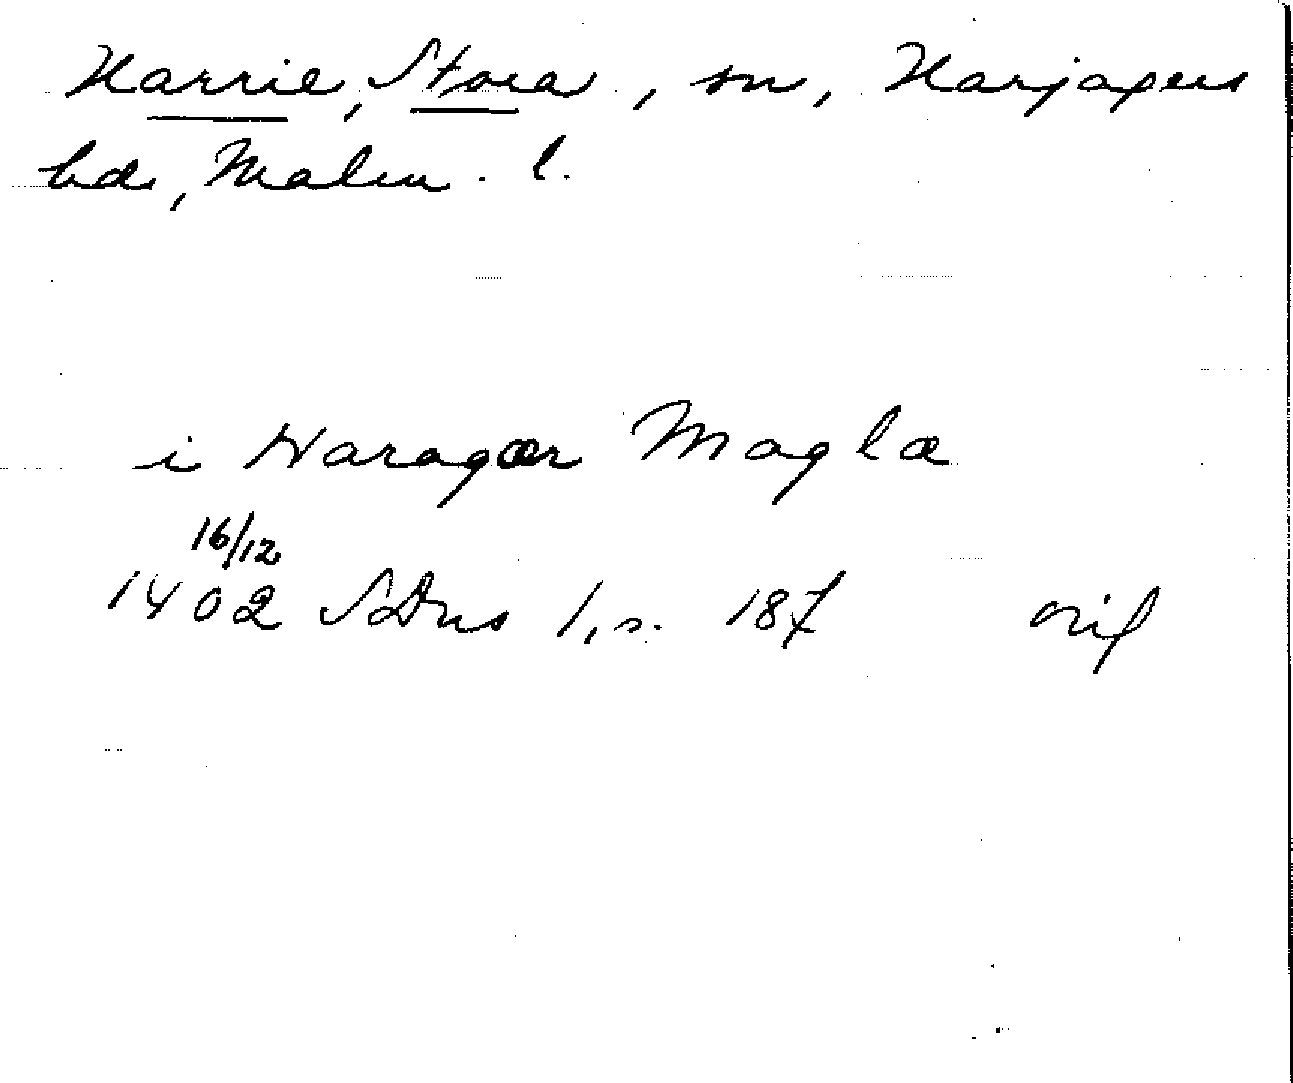 Harrie, Stora, sn, Harjagers
hd, Malm. l.
i Haragær Maglæ
16/12
1402 SDns 1, s. 187 orig